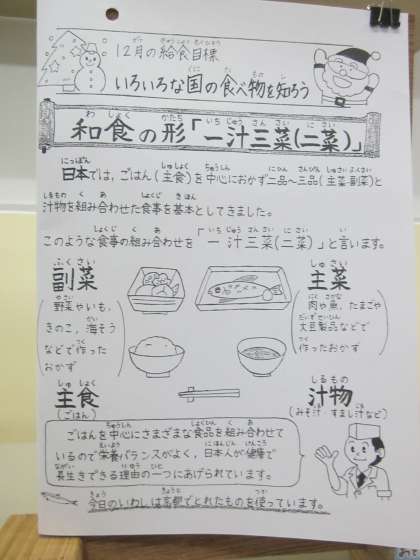 12月の給食目標
いろいろな国の食べ物を知ろう
和食の形「一汁三菜(二菜)」
日本では、ごはん(主食)を中心におかず二品～三品(主菜・副菜)と
汁物を組み合わせた食事を基本としてきました。
このような食事の組み合わせを「一汁三菜(二菜)」と言います。
副菜
野菜やいも、
きのこ、海そう
などで作った
おかず
主菜
肉や魚、たまごや
大豆製品などで
作ったおかず
主食
(ごはん)
汁物
(みそ汁・すまし汁など)
ごはんを中心にさまざまな食品を組み合わせて
いるので栄養バランスがよく、日本人が健康で
長生きできる理由の一つにあげられています。
今日のいわしは京都でとれたものを使っています。